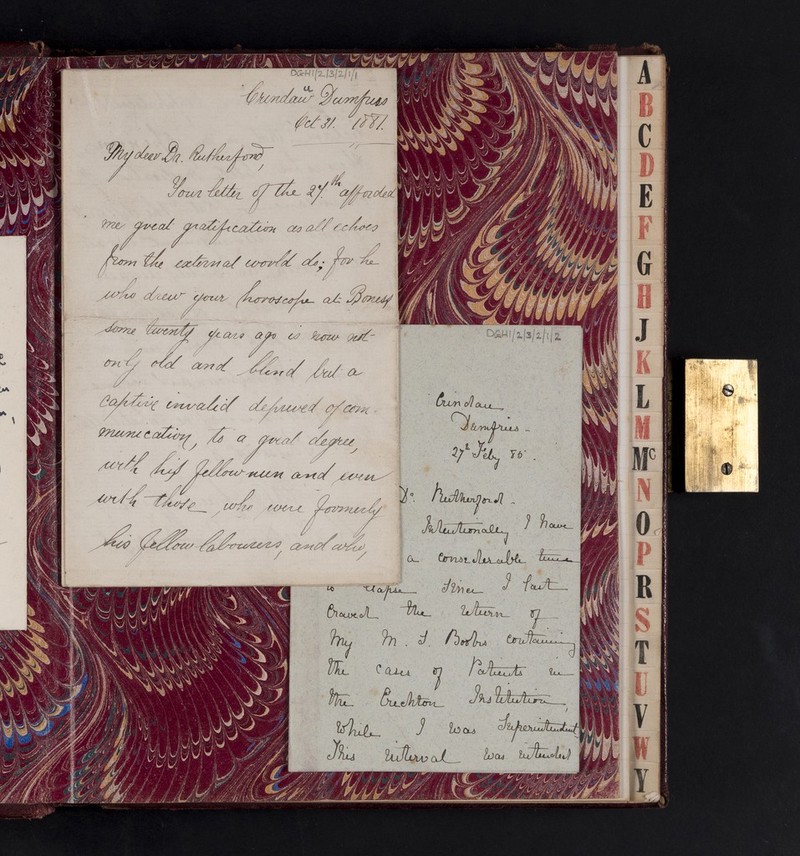 DGH1/2/3/2/1/1
Crindau Dumfries
Oct 31. 1881.
My dear Dr. Rutherford,
Your letter of the 27th afforded
me great gratification as all echoes
from the external world do; for he
who drew your horoscope at Boness
some twenty years ago is now not
only old and blind but a
captive invalid deprived of com-
munication, to a great degree,
with his fellow men and even
with those, who were formerly
his fellow labourers, and who,
DGH1/2/3/2/1/2
Crindau
Dumfries -
27th Feby 85.
Dr Rutherford -
Intentionally I have
a considerable time
to elapse since I last
craved the return of
my M. S. Books containing
the cases of Patients in
the Crichton Institution,
while I was Superintendent
This interval was intended
A
B
C
D
E
F
G
H
J
K
L
M
Mc
N
O
P
R
S
T
U
V
W
Y